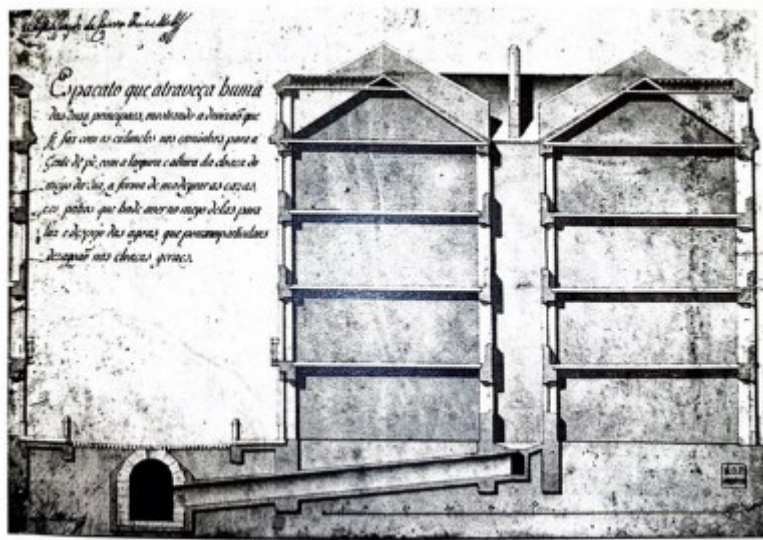 Espacato que atraveça huma
das Ruas principaes, mostrando a divizaõ que
se fas com os colunelos nos caminhos para a
Gente de pè, com a largura e altura da cloaca do
meyo da Rua, a forma de madeyrar as cazas,
e os patios que hade aver no meyo delas para
luz e despejo das agoas, que por particulares
desagoaõ nas cloacas geraes.